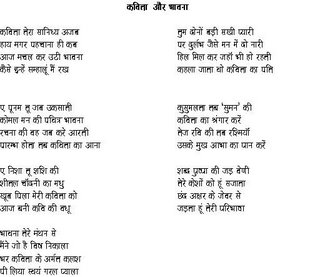 कविता और भावना
कविता तेरा सानिध्य अजब
हाय मगर पहचाना ही कब
आज मचल कर उठी भावना
कैसे इन्हें सम्हालूं मैं रब
ऐ पूनम तू जब उकसाती
कोमल मन की पवित्र भावना
रचना की वह जब करे आरती
पारम्भ होता तब कविता का आना
ऐ निशा तू शशि की
शीतल चाँदनी का मधु
खूब पिला मेरी कविता को
आज बनी कवि की वधू
भावना तेरे मंथन से
मैंने जो है विष निकाला
भर कविता के अर्मत कलश
पी लिया स्वयं गरल प्याला
तुम दोनों बड़ी सखी प्यारी
पर दुर्लभ जैसे मन में दो नारी
हिल मिल कर जहाँ भी हो रहती
कहला जाता वो कविता का पति
कुसुमलता तब 'सुमन' की
कविता का श्रंगार करें
तेज रवि की तब रश्मियाँ
उसके मुख आभा का पान करें
शब्द पुष्पा की जड़ वेणी
तेरे केशों को हूं सजाता
छंद अक्षर के जेवर से
जड़ता हूं तेरी परिभाषा